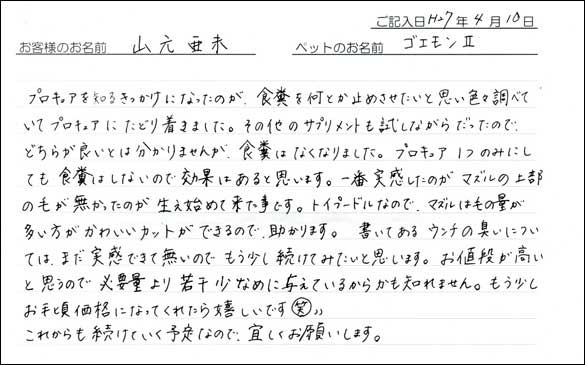 ご記入日H27年4月10日
お客様のお名前 山元亜未 ペットのお名前 ゴエモンⅡ
プロキュアを知るきっかけになったのが、食糞を何とか止めさせたいと思い色々調べて
いてプロキュアにたどり着きました。その他のサプリメントも試しながらだったので、
どちらが良いとは分かりませんが、食糞はなくなりました。プロキュア1つのみにし
ても食糞はしないので効果はあると思います。一番実感したのがマズルの上部
の毛が無かったのが生え始めて来た事です。トイプードルなので、マズルはもの量が
多い方がかわいいカットができるので、助かります。 書いてあるウンチの臭いについ
ては、まだ実感できて無いのでもう少し続けてみたいと思います。お値段が高い
と思うので必要量より若干少なめに与えているからかも知れません。もう少し
お手頃価格になってくれたら嬉しいです(笑)〃
これからも続けていく予定なので、宜しくお願いします。